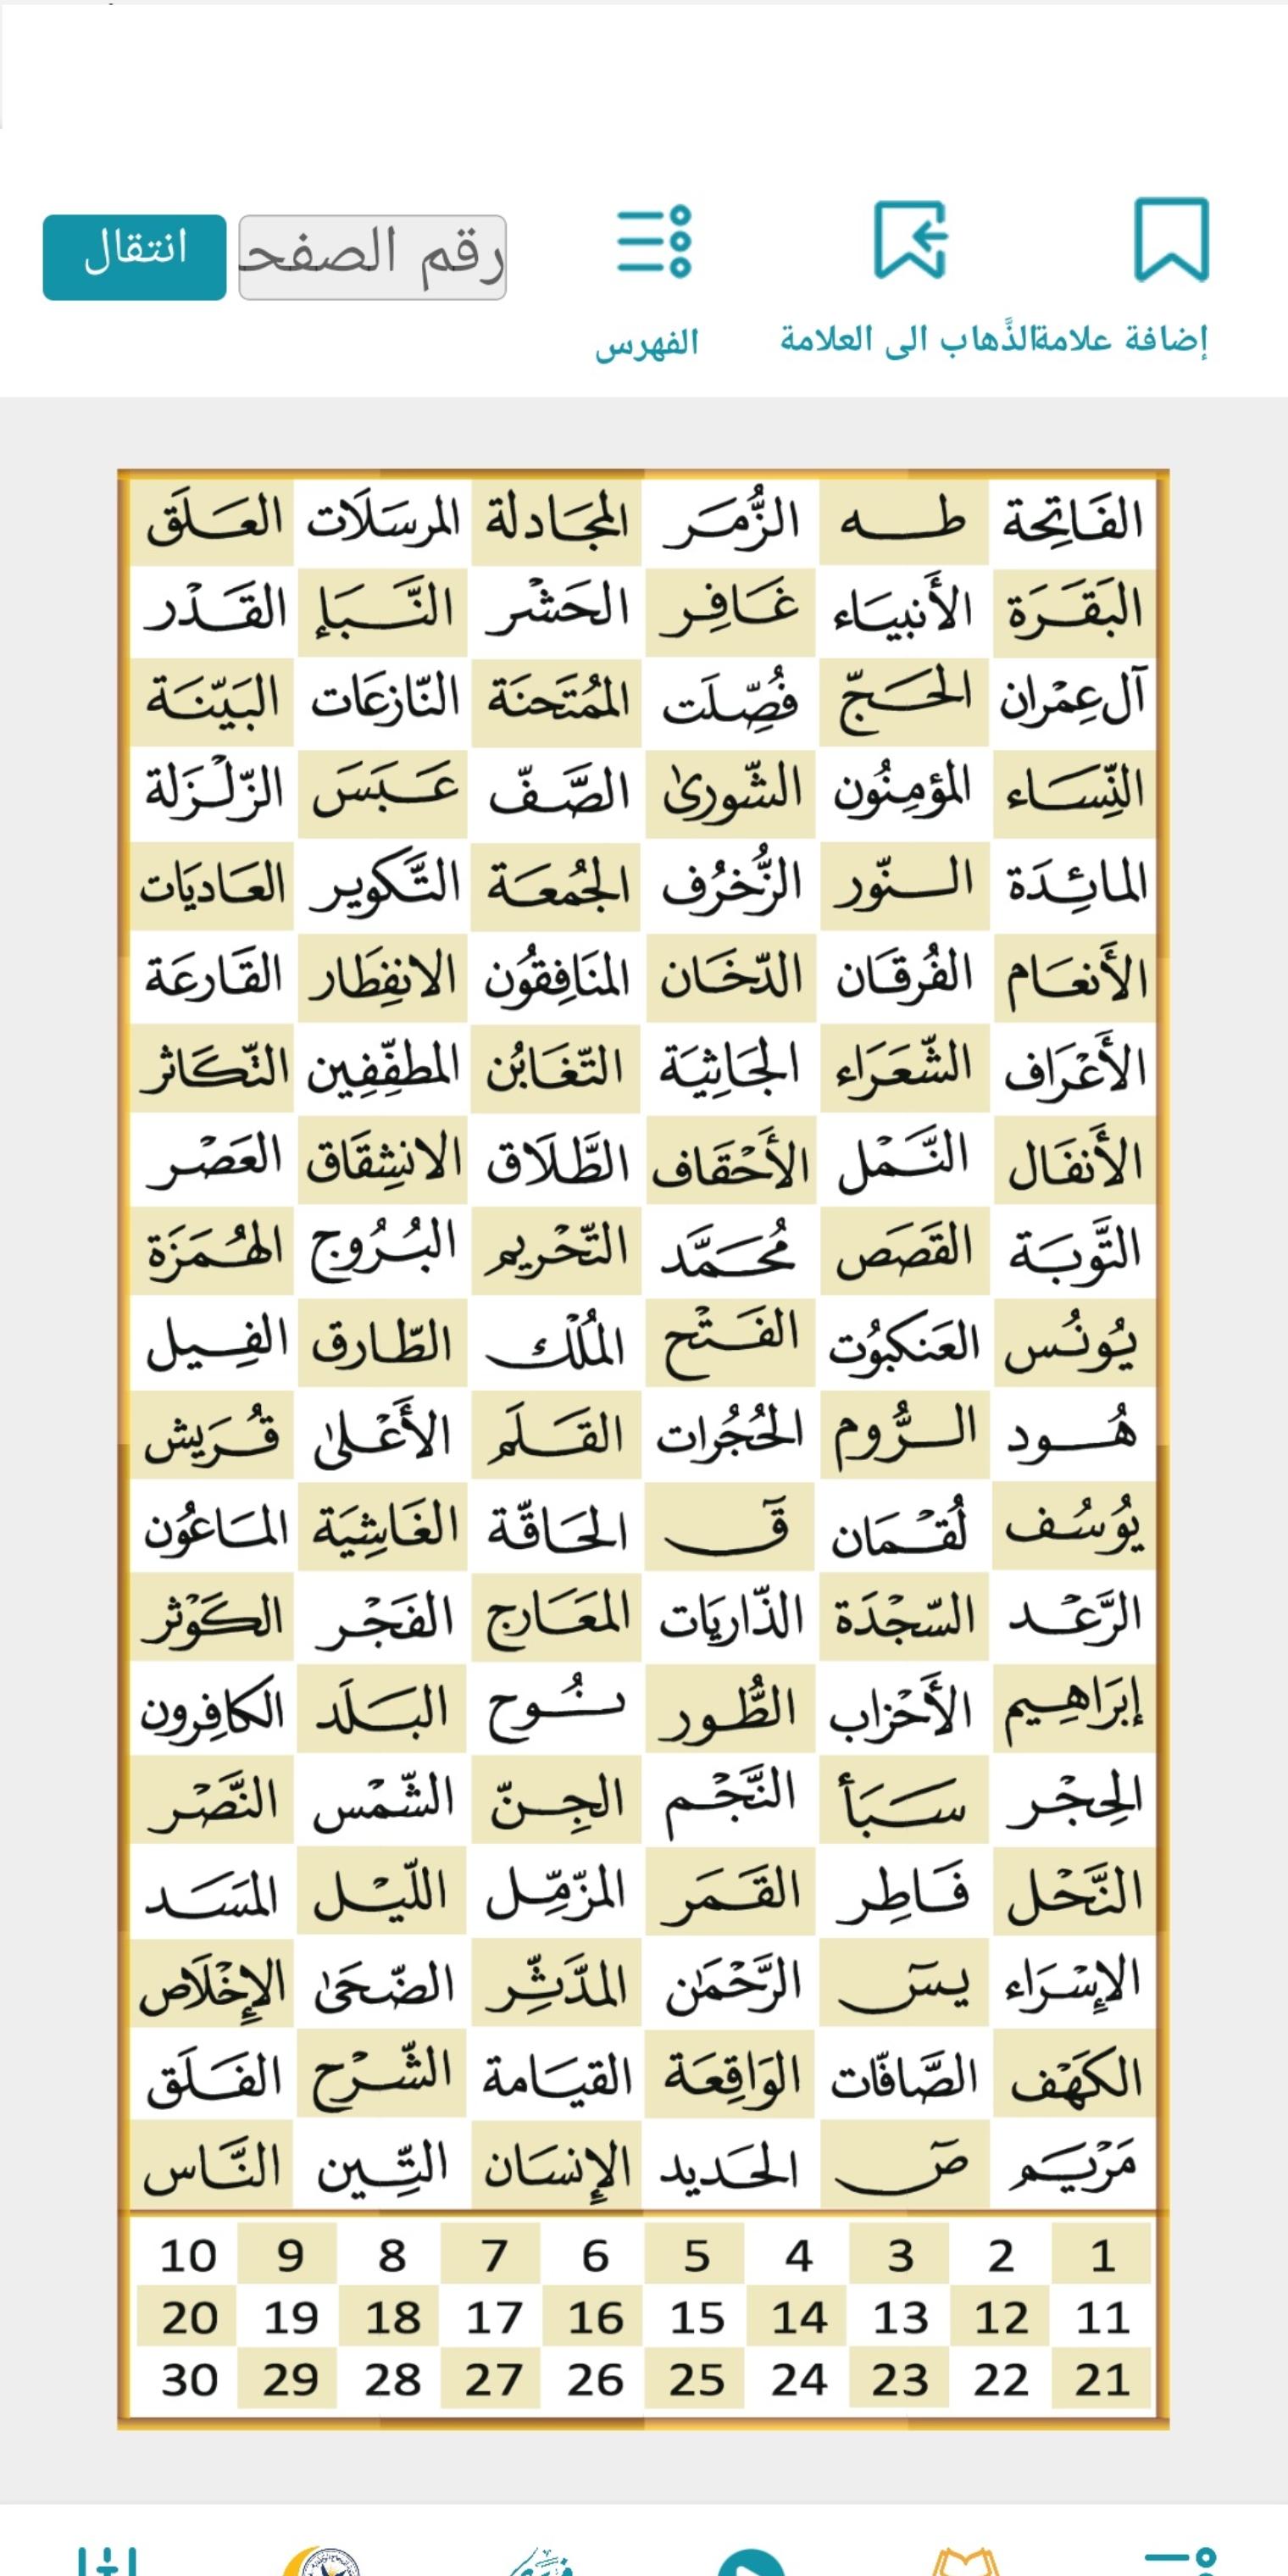 إضافة علامة الذَّهاب الى العلامة الفهرس رقم الصفح انتقال
الفَاتِحة طه الزُّمَر المجَادلة المرسَلَات العَلَق
البَقَرَة الأَنبيَاء غَافِر الحَشْر النَّبَإ القَدْر
آل عِمْران الحَجّ فُصِّلَت المُمْتَحنَة النّازعَات البَيّنَة
النِّسَاء المؤمِنُون الشّورىٰ الصَّفّ عَبَسَ الزّلْزَلة
المائِدَة النّور الزُّخرُف الجُمُعَة التَّكوير العَاديَات
الأَنعَام الفُرقَان الدّخَان المنَافِقُون الانفِطَار القَارعَة
الأَعْرَاف الشّعَرَاء الجَاثِيَة التّغَابُن المطفِّفِين التّكَاثر
الأَنفَال النَّمْل الأَحْقَاف الطَّلَاق الانشِقَاق العَصْر
التَّوبَة القَصَص مُحَمَّد التّحْريم البُرُوج الهُمَزَة
يُونُس العَنكبُوت الفَتْح المُلْك الطّارق الفِيل
هُود الرُّوم الحُجُرات القَلَم الأَعْلىٰ قُرَيش
يوُسُف لُقْمَان قٓ الحَاقّة الغَاشِيَة المَاعُون
الرَّعْد السّجْدَة الذّاريَات المعَارج الفَجْر الكَوْثر
إبرَاهِيم الأَحْزاب الطُّور نُوح البَلَد الكافِرون
الحِجْر سَبَأ النَّجْم الجِنّ الشّمْس النَّصْر
النَّحْل فَاطِر القَمَر المزّمِّل اللّيْل المَسَد
الإسْرَاء يسٓ الرَّحْمَٰن المدَّثِّر الضّحَىٰ الإخْلَاص
الكَهْف الصَّافّات الوَاقِعَة القيَامة الشّرْح الفَلَق
مَرْيَم صٓ الحَديد الإنسَان التِّين النَّاس
1 2 3 4 5 6 7 8 9 10
11 12 13 14 15 16 17 18 19 20
21 22 23 24 25 26 27 28 29 30